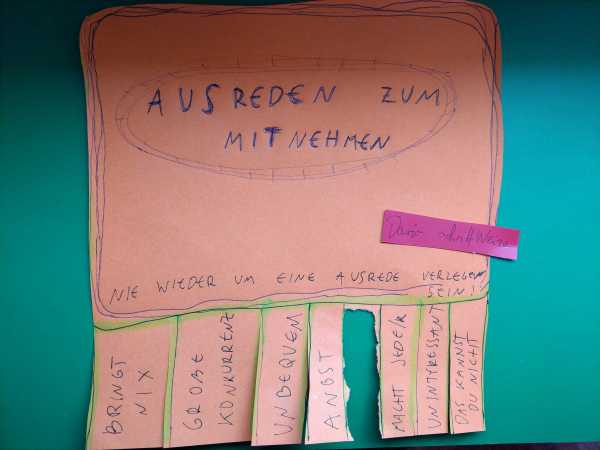 AUSREDEN ZUM
MITNEHMEN
NIE WIEDER UM EINE AUSREDE VERLEGEN
SEIN!!
BRINGT
NIX
GROßE
KONKURRENZ
UNBEQUEM
ANGST
MACHT JEDE/R
UNINTYRESSANT
DAS KANNST
DU NICHT